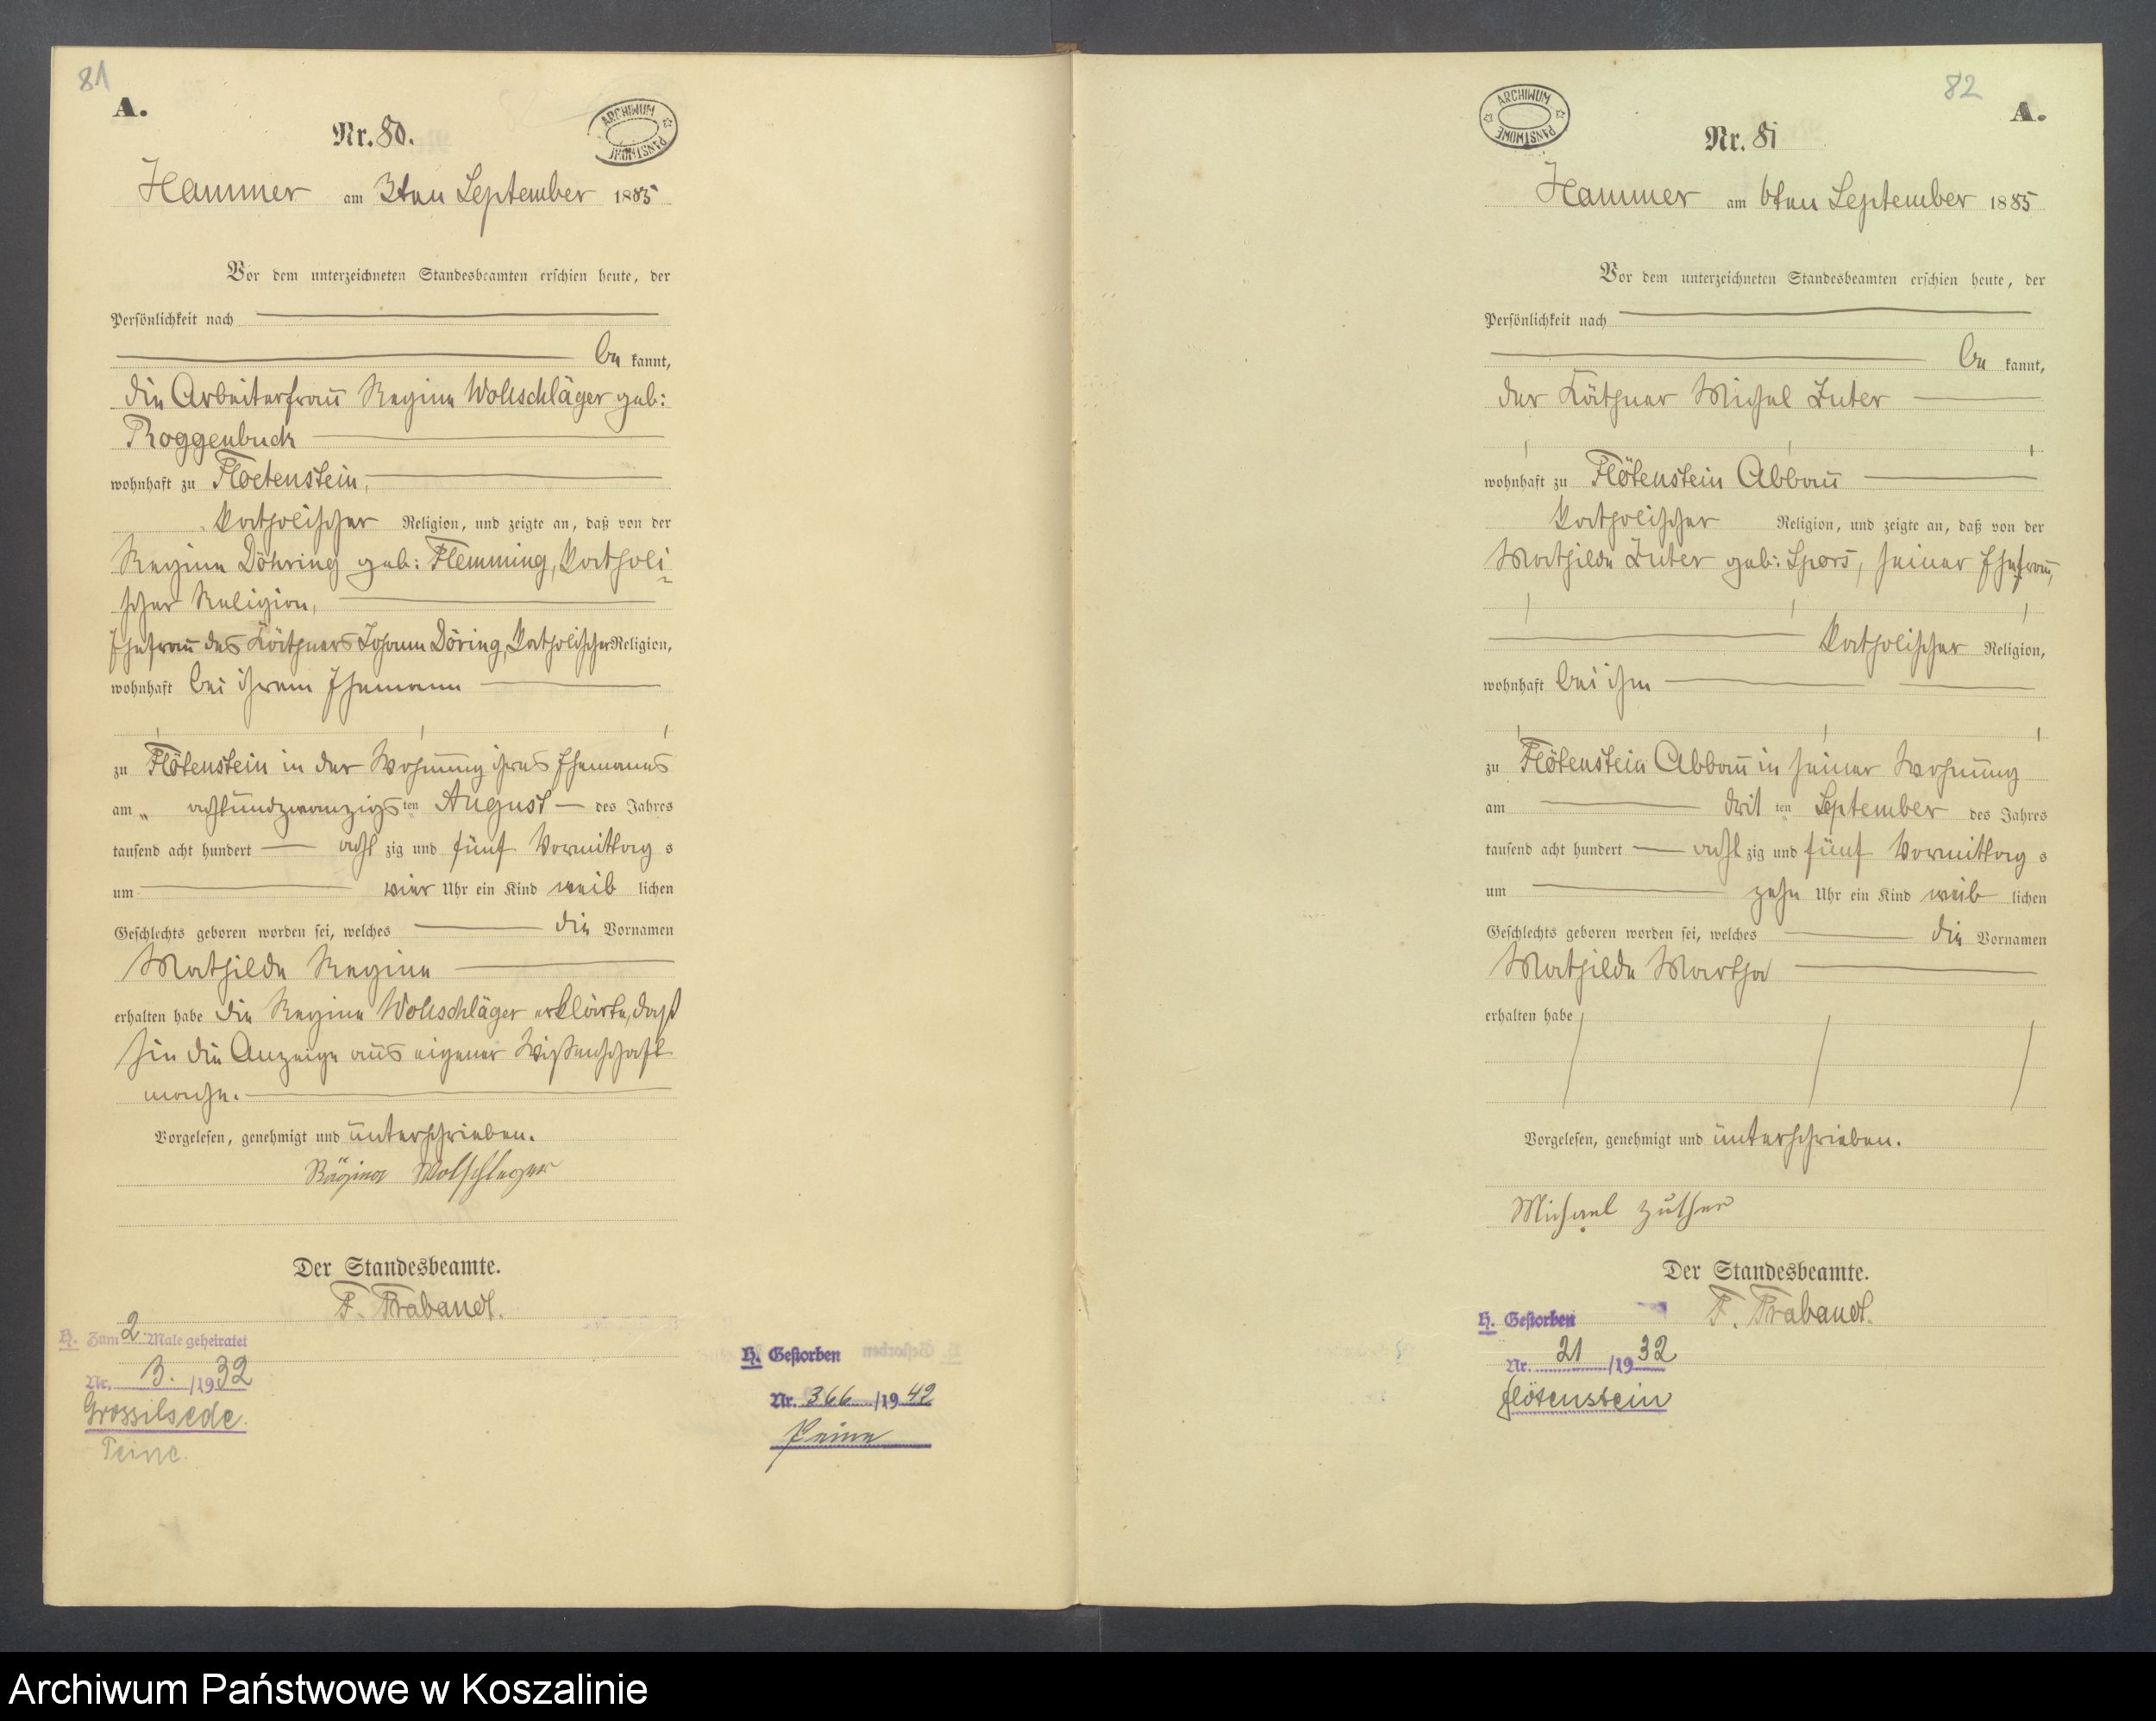 81
A.
ARCHIWUM PAŃSTWOWE
Nr. 80.
Hammer am 3ten September 1885
Vor dem unterzeichneten Standesbeamten erschien heute, der
Persönlichkeit nach
be kannt,
die Arbeiterfrau Regine Wollschläger geb:
Roggenbuck
wohnhaft zu Floetenstein,
katholischer Religion, und zeigte an, daß von der
Regine Döhring geb: Flemming, katholi-
scher Religion,
Ehefrau des Käthners Johann Döring, katholischer Religion,
wohnhaft bei ihrem Ehemann
zu Flötenstein in der Wohnung ihres Ehemanns
am " achtundzwanzigs ten August des Jahres
tausend acht hundert acht zig und fünf Vormittag s
um vier Uhr ein Kind weib lichen
Geschlechts geboren worden sei, welches die Vornamen
Mathilde Regine
erhalten habe die Regine Wollschläger erklärte, daß
sie die Anzeige aus eigener Wissenschaft
mache.
Vorgelesen, genehmigt und unterschrieben.
Rägina Wolschleger
Der Standesbeamte.
F. Brabandt.
H. Zum 2. Male geheiratet
Nr. 3. /19 32
Grossilsede.
Peine.
H. Gestorben
Nr. 366 /19 42
Peine
82
A.
ARCHIWUM PAŃSTWOWE
Nr. 81
Hammer am 6ten September 1885
Vor dem unterzeichneten Standesbeamten erschien heute, der
Persönlichkeit nach
be kannt,
der Käthner Michel Zuter
wohnhaft zu Flötenstein Abbau
katholischer Religion, und zeigte an, daß von der
Mathilde Zuter geb: Spors, seiner Ehefrau,
katholischer Religion,
wohnhaft bei ihm
zu Flötenstein Abbau in seiner Wohnung
am drit ten September des Jahres
tausend acht hundert acht zig und fünf Vormittag s
um zehn Uhr ein Kind weib lichen
Geschlechts geboren worden sei, welches die Vornamen
Mathilde Martha
erhalten habe
Vorgelesen, genehmigt und unterschrieben.
Michael Zuther
Der Standesbeamte.
F. Brabandt.
H. Gestorben
Nr. 21 /19 32
Flötenstein
Archiwum Państwowe w Koszalinie